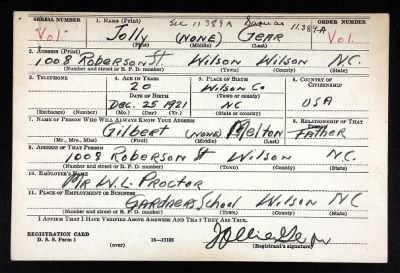 SERIAL NUMBER 1. NAME (Print) ORDER NUMBER
See 11.389A 11.389-A
Vol. Jolly (NONE) Gear Vol.
(First) (Middle) (Last)
2. ADDRESS (Print)
1008 Roberson St. Wilson Wilson N.C.
(Number and street or R. F. D. number) (Town) (County) (State)
3. TELEPHONE 4. AGE IN YEARS 5. PLACE OF BIRTH 6. COUNTRY OF CITIZENSHIP
20 Wilson Co
DATE OF BIRTH (Town or county)
Dec. 25 1921 NC USA
(Exchange) (Number) (Mo.) (Day) (Yr.) (State or country)
7. NAME OF PERSON WHO WILL ALWAYS KNOW YOUR ADDRESS 8. RELATIONSHIP OF THAT PERSON
Gilbert (none) Melton Father
(Mr., Mrs., Miss) (First) (Middle) (Last)
9. ADDRESS OF THAT PERSON
1008 Roberson St Wilson N.C.
(Number and street or R. F. D. number) (Town) (County) (State)
10. EMPLOYER'S NAME
Mr W.L. Proctor
11. PLACE OF EMPLOYMENT OR BUSINESS
Gardners School Wilson NC
(Number and street or R. F. D. number) (Town) (County) (State)
I AFFIRM THAT I HAVE VERIFIED ABOVE ANSWERS AND THAT THEY ARE TRUE.
REGISTRATION CARD
D. S. S. Form 1 (over) 16—17105 (Registrant's signature)